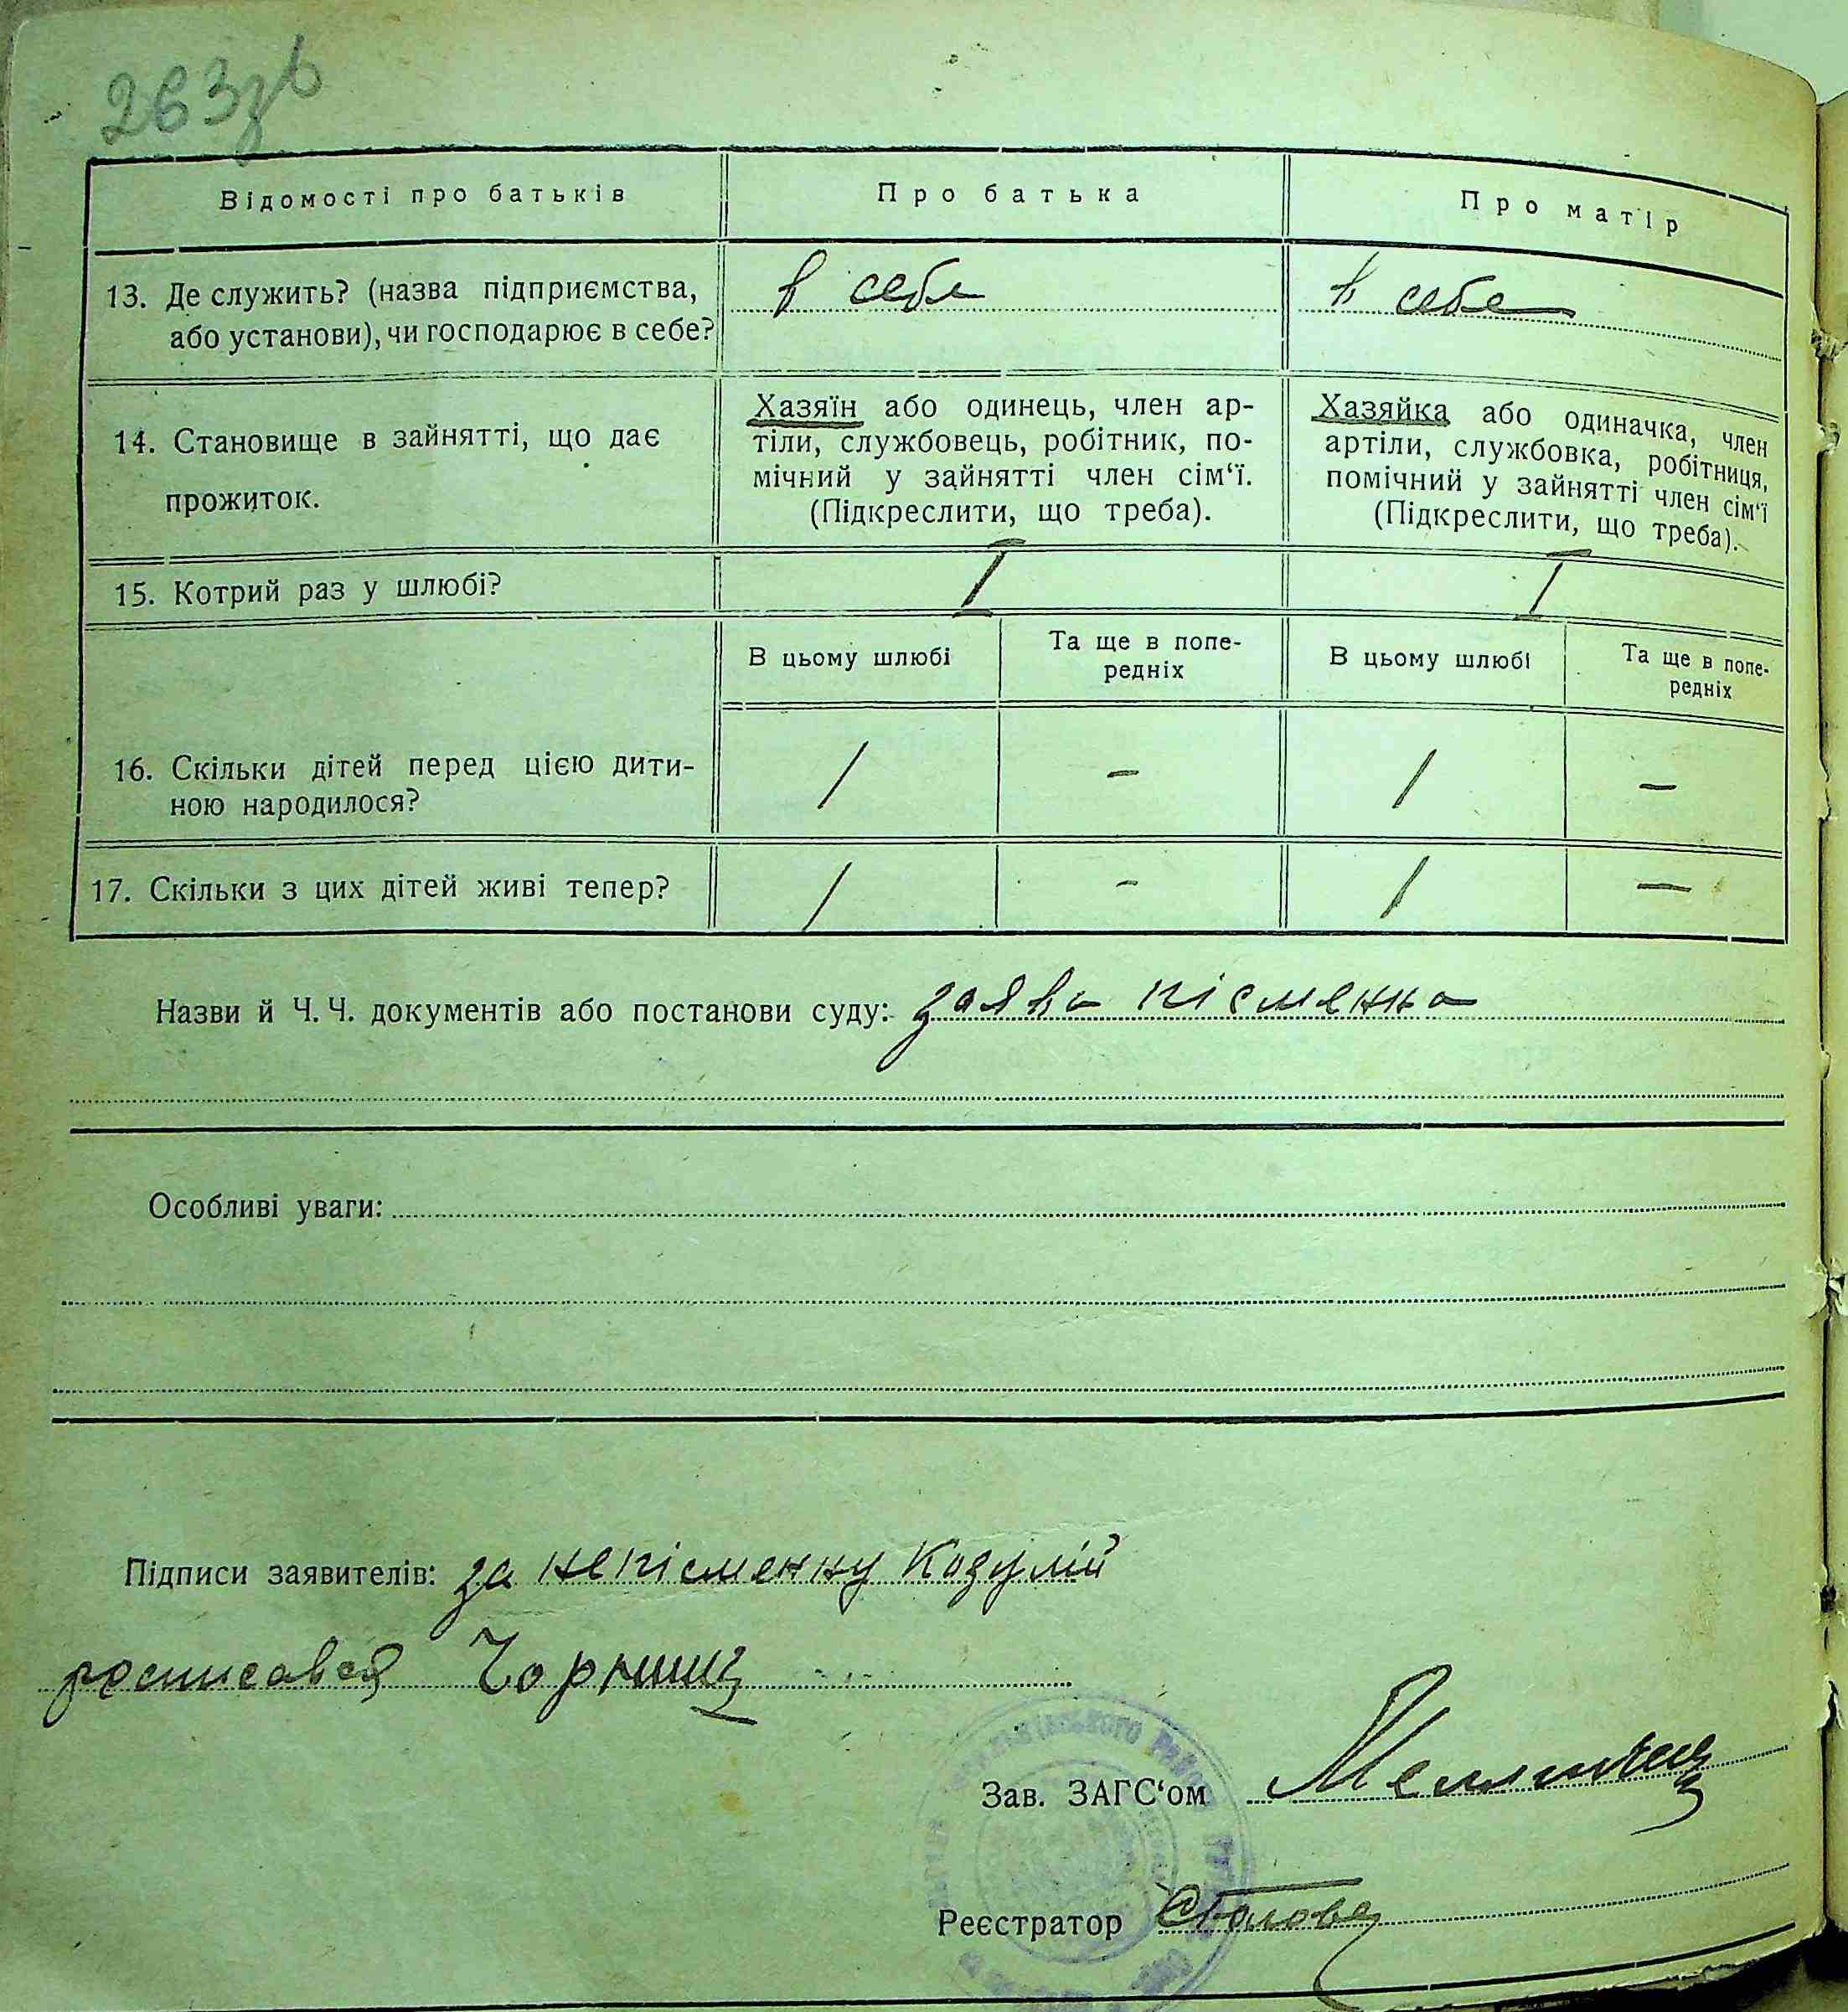 263зв
Відомості про батьків
Про батька
Про матір
13. Де служить? (назва підприємства,
або установи), чи господарює в себе?
в себе
в себе
14. Становище в зайнятті, що дає
прожиток.
Хазяїн або одинець, член ар-
тіли, службовець, робітник, по-
мічний у зайнятті член сім‘ї.
(Підкреслити, що треба).
Хазяйка або одиначка, член
артіли, службовка, робітниця,
помічний у зайнятті член сім‘ї
(Підкреслити, що треба).
15. Котрий раз у шлюбі?
I
I
В цьому шлюбі
Та ще в попе-
редніх
В цьому шлюбі
Та ще в попе-
редніх
16. Скільки дітей перед цією дити-
ною народилося?
/ - / -
17. Скільки з цих дітей живі тепер?
/ - / -
Назви й Ч. Ч. документів або постанови суду: заява пісменна
Особливі уваги:
Підписи заявителів: за непісменну Козулій
росписався
Зав. ЗАГС‘ом
Реєстратор